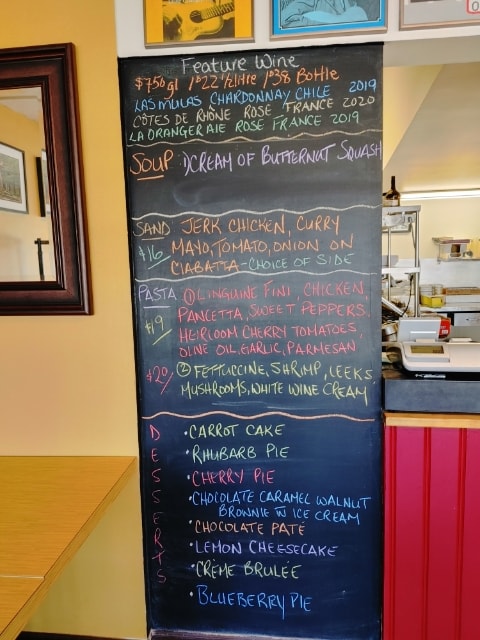 Feature Wine
$7.50 gl 1/$22 1/2 litre 1/$38 Bottle
LAS MULAS CHARDONNAY CHILE 2019
CÔTES DE RHÔNE ROSÉ FRANCE 2020
LA ORANGERAIE ROSÉ FRANCE 2019
SOUP 1) CREAM OF BUTTERNUT SQUASH
SAND JERK CHICKEN, CURRY
$16 MAYO, TOMATO, ONION ON
CIABATTA - CHOICE OF SIDE
PASTA ① LINGUINE FINI, CHICKEN,
PANCETTA, SWEET PEPPERS,
$19 HEIRLOOM CHERRY TOMATOES,
OLIVE OIL, GARLIC, PARMESAN
$20 ② FETTUCCINE, SHRIMP, LEEKS
MUSHROOMS, WHITE WINE CREAM
DESSERTS
• CARROT CAKE
• RHUBARB PIE
• CHERRY PIE
• CHOCOLATE CARAMEL WALNUT
BROWNIE W ICE CREAM
• CHOCOLATE PATÉ
• LEMON CHEESECAKE
• CRÈME BRULEÉ
• BLUEBERRY PIE